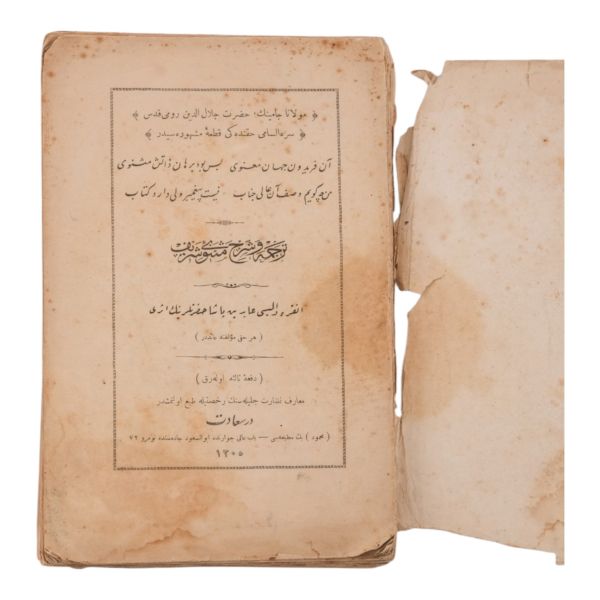 ﴿ مولانا جامینك؛ حضرت جلال الدین رومی قدس ﴾
﴿ سره السامی حقنده کی قطعهٔ مشهوره سیدر ﴾
آن فریدون جهان معنوی بس بود برهان ذاتش مثنوی
من چه گویم وصف آن عالی جناب نیست پیغمبر ولی دارد کتاب
ترجمه و شرح مثنوی شریف
انقره والیسی عابدین پاشا حضرتلرینك اثری
( هر حق مؤلفنه عائددر )
( دفعهٔ ثالثه اوله رق )
معارف نظارت جلیله سنك رخصتیله طبع اولنمشدر
در سعادت
( محمود ) بك مطبعه سی — باب عالی جوارنده ابو السعود جاده سنده نومرو ۷۲
۱۳۰۵